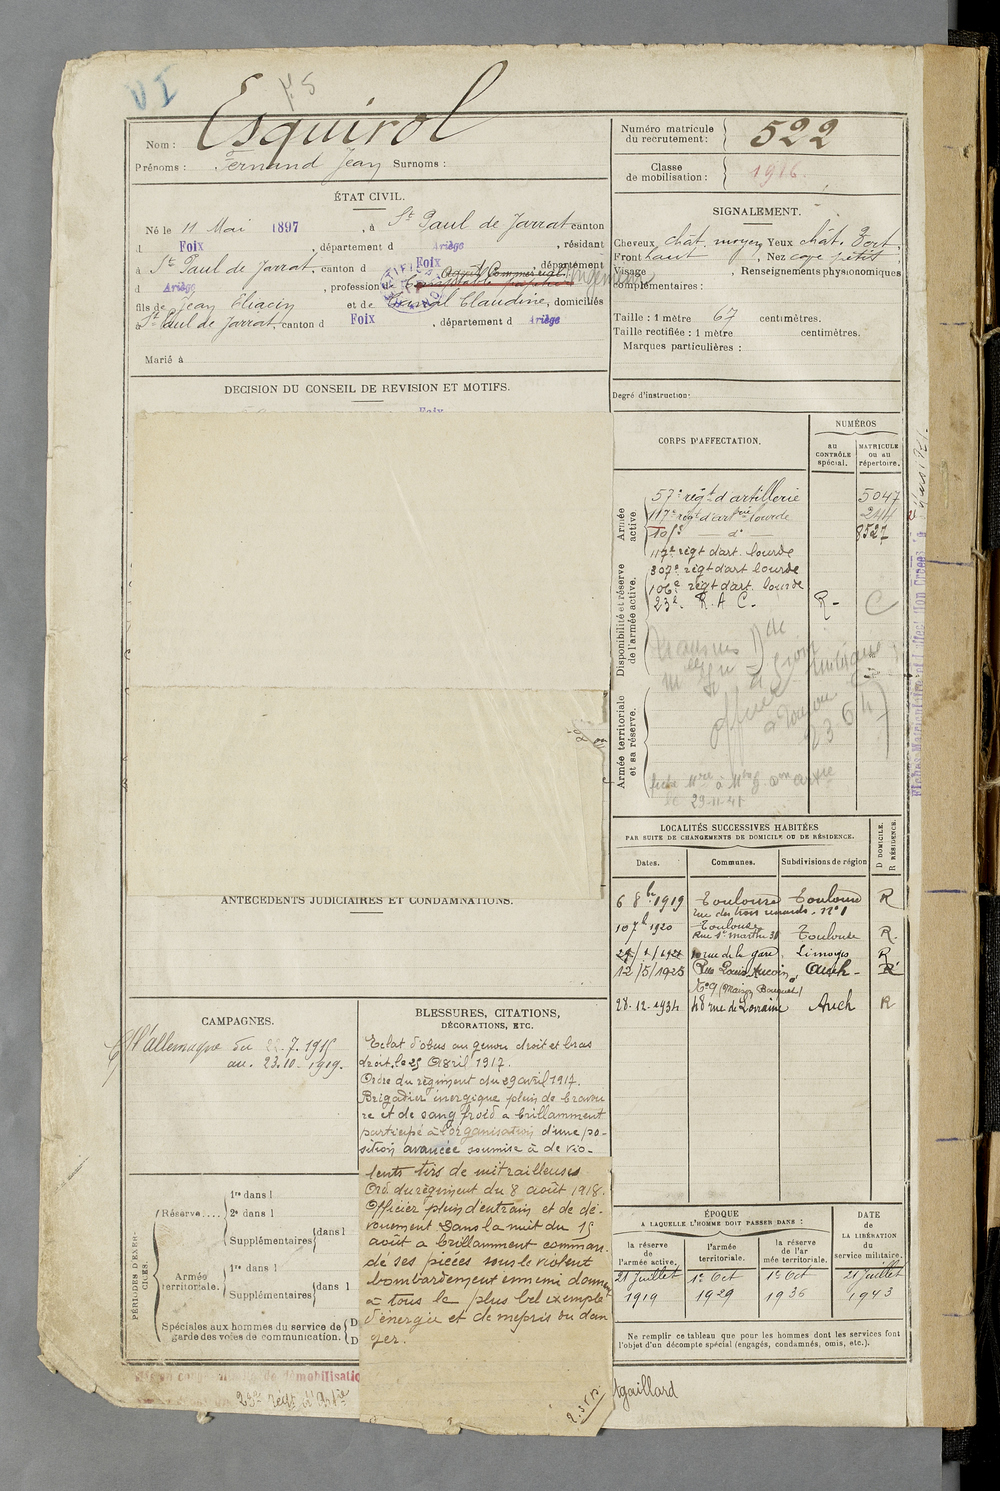 VI
Esquirol
Nom :
Prénoms : Fernand Jean Surnoms :
Numéro matricule du recrutement : 522
Classe de mobilisation : 1916.
ÉTAT CIVIL.
Né le 11 Mai 1897, à St Paul de Jarrat canton
d Foix, département d Ariège, résidant
à St Paul de Jarrat, canton d Foix, département
d Ariège, profession d
fils de Jean Eliacin et de Claudine, domiciliés
à St Paul de Jarrat, canton d Foix, département d Ariège
Marié à
SIGNALEMENT.
Cheveux chât. moyen Yeux chât. Fort
Front haut, Nez petit
Visage, Renseignements physionomiques
complémentaires :
Taille : 1 mètre 67 centimètres.
Taille rectifiée : 1 mètre centimètres.
Marques particulières :
Degré d'instruction:
DECISION DU CONSEIL DE REVISION ET MOTIFS.
Foix
CORPS D'AFFECTATION.
NUMÉROS
au CONTRÔLE spécial.
MATRICULE ou au répertoire.
Armée active
57e régt d'artillerie 5047
117e régt d'art rie lourde 244
10 d° 8527
117e régt d'art. lourde
Disponibilité et réserve de l'armée active.
307e régt d'art lourde
106e régt d'art. lourde
23e. R. A. C. R - C
à
Armée territoriale et sa réserve.
23 6 47
le 29-11-41
LOCALITÉS SUCCESSIVES HABITÉES
PAR SUITE DE CHANGEMENTS DE DOMICILE OU DE RÉSIDENCE.
Dates. Communes. Subdivisions de région
D DOMICILE. R RÉSIDENCE.
6 8bre 1919 Toulouse Toulouse R
rue des trois renards. N°1
10 7b 1920 Toulouse Toulouse R.
Rue St Martin 38
rue de la gare. Limoges R
12/5/1925 Rue Louis Aucoin, Auch - R
N°9 (Maison Bouquet)
28-12-1934 48 rue de Lorraine Auch R
ANTÉCÉDENTS JUDICIAIRES ET CONDAMNATIONS.
CAMPAGNES.
C/ l'allemagne du 7. 1915
au 23.10.1919.
BLESSURES, CITATIONS,
DÉCORATIONS, ETC.
Eclat d'obus au genou droit et bras
droit, le 25 Avril 1917.
Ordre du régiment du 29 avril 1917.
Brigadier énergique plein de bravou
re et de sang froid a brillamment
participé à l'organisation d'une po-
sition avancée soumise à de vio-
lents tirs de mitrailleuses
Ord. du régiment du 8 août 1918.
Officier plein d'entrain et de dé-
vouement. Dans la nuit du 15
août a brillamment comman-
dé ses pièces sous le violent
bombardement ennemi donnant
à tous le plus bel exemple
d'énergie et de mépris du dan
ger.
PÉRIODES D'EXERCICES.
Réserve....
1re dans l
2e dans l
Supplémentaires dans l
Armée territoriale.
1re dans l
Supplémentaires dans l
Spéciales aux hommes du service de garde des voies de communication. D D
ÉPOQUE
A LAQUELLE L'HOMME DOIT PASSER DANS :
la réserve de l'armée active.
l'armée territoriale.
la réserve de l'armée territoriale.
DATE de LA LIBÉRATION du service militaire.
21 Juillet 1919
1er Oct 1929
1er Oct 1936
21 Juillet 1943
Ne remplir ce tableau que pour les hommes dont les services font
l'objet d'un décompte spécial (engagés, condamnés, omis, etc.).
démobilisation
23e régt d'Artie
gaillard